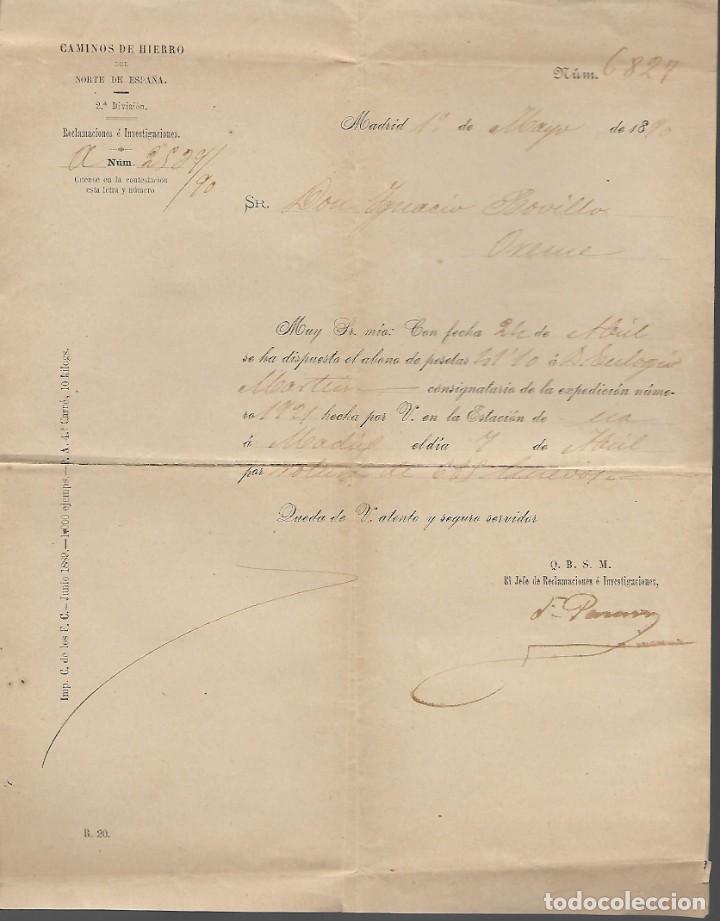 CAMINOS DE HIERRO
DEL
NORTE DE ESPAÑA.
2.ª División.
Reclamaciones é Investigaciones.
A Núm. 2829/90
Cítense en la contestación
esta letra y número
Núm. 6827
Madrid 1º de Mayo de 1890
SR. Don Ignacio Bovillo
Muy Sr. mio: Con fecha 24 de Abril
se ha dispuesto el abono de pesetas 41'10 á D. Eulogio
Martin consignatario de la expedición núme-
ro 1921 hecha por V. en la Estación de
á Madrid el día 7 de Abril
por rotura de huevos
Queda de V. atento y seguro servidor
Q. B. S. M.
El Jefe de Reclamaciones é Investigaciones,
Imp. C. de los F. C.—Junio 1889.—1.000 ejemps.—P. A. 4.ª Carré, 10 kilogs.
R. 20.
todocoleccion